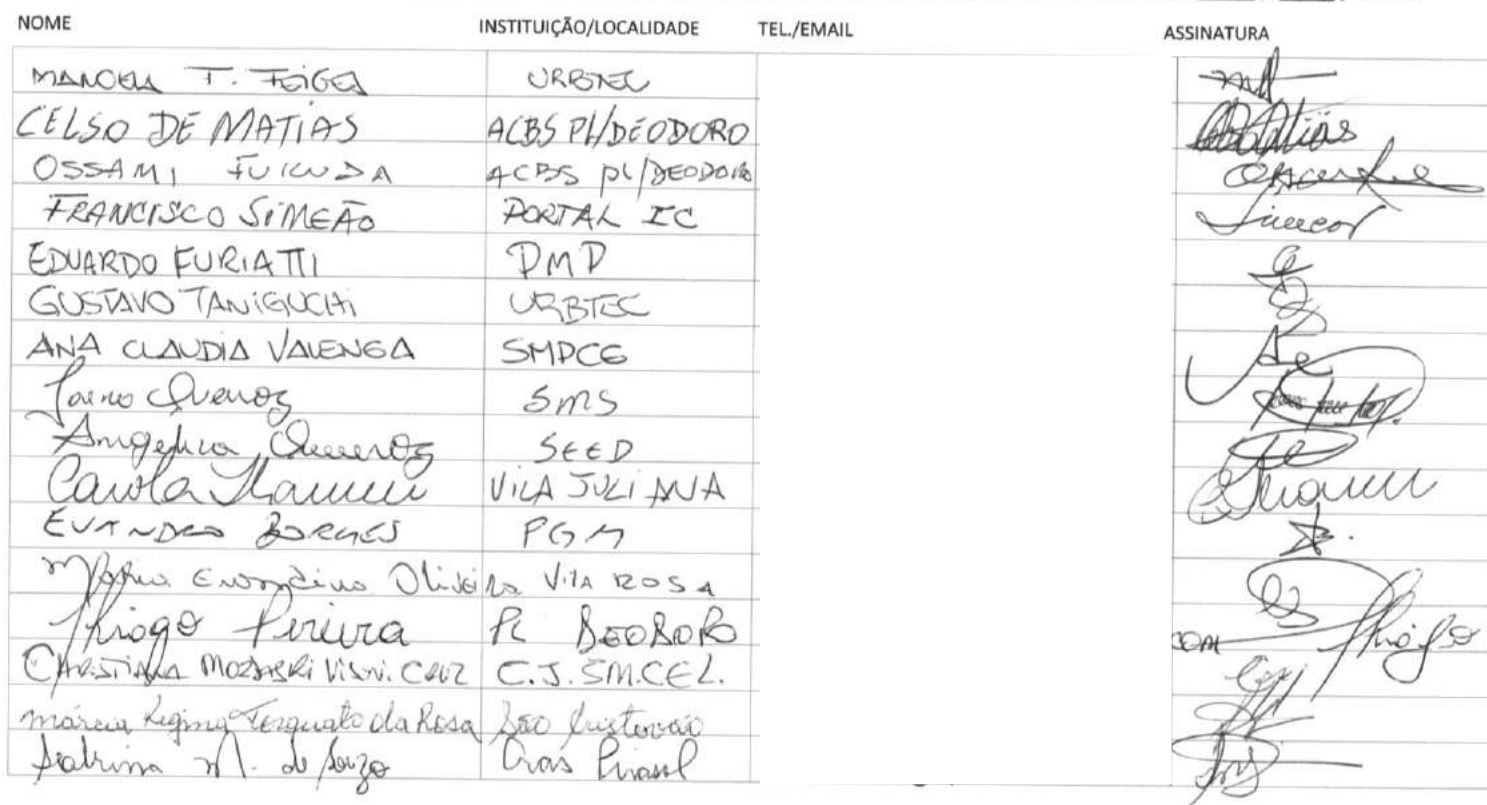 NOME INSTITUIÇÃO/LOCALIDADE TEL./EMAIL ASSINATURA
MANOELA T. FEIGES URBTEC
CELSO DE MATIAS ACBS PL/DEODORO
OSSAMI FUKUDA ACBS PL/DEODORO
FRANCISCO SIMEÃO PORTAL IC Simeão
EDUARDO FURIATTI PMP
GUSTAVO TANIGUCHI URBTEC
ANA CLAUDIA VALENGA SMPCG
Queiroz SMS
Angelica Queiroz SEED
Carola VILA JULIANA
EVANDRO BORGES PGM
Maria Oliveira VILA ROSA
Thiago Pereira PL DEODORO COM Thiago
CHRISTIANA VISNI. CRUZ C.J. SMCEL.
Márcia Regina Torquato da Rosa São Cristovão
Sabrina M. de Souza Cras